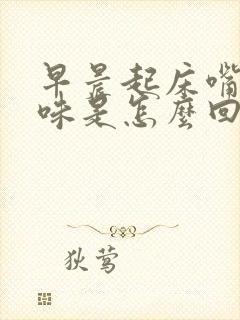 早晨起床嘴
味是怎麼回
狄莺